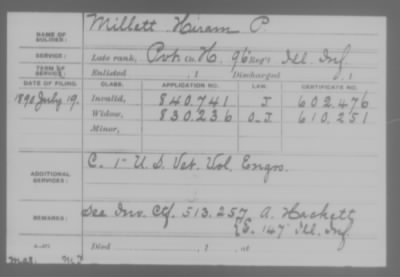 NAME OF SOLDIER: Millett Hiram P
SERVICE: Late rank, Pvt Co. H, 96 Reg't Ill. Inf
TERM OF SERVICE: Enlisted , 1 Discharged , 1
DATE OF FILING. CLASS. APPLICATION NO. LAW. CERTIFICATE NO.
1890 July 19. Invalid, 840.741 J 602.476
Widow, 830.236 O.J. 610.251
Minor,
ADDITIONAL SERVICES: C. 1" U.S. Vet. Vol. Engrs.
REMARKS: See Inv. Ctf. 513.257 A. Hackett
E. 147 Ill. Inf.
Died , 1 , at